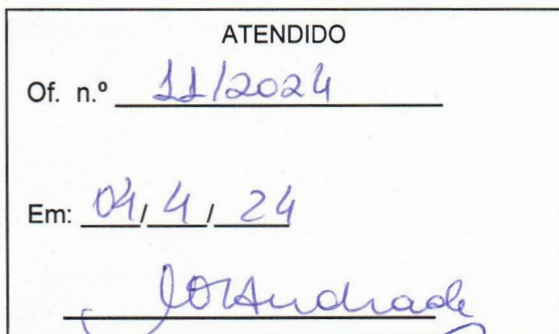 ATENDIDO
Of. n.º 11/2024
Em: 04/4/24
Andrade